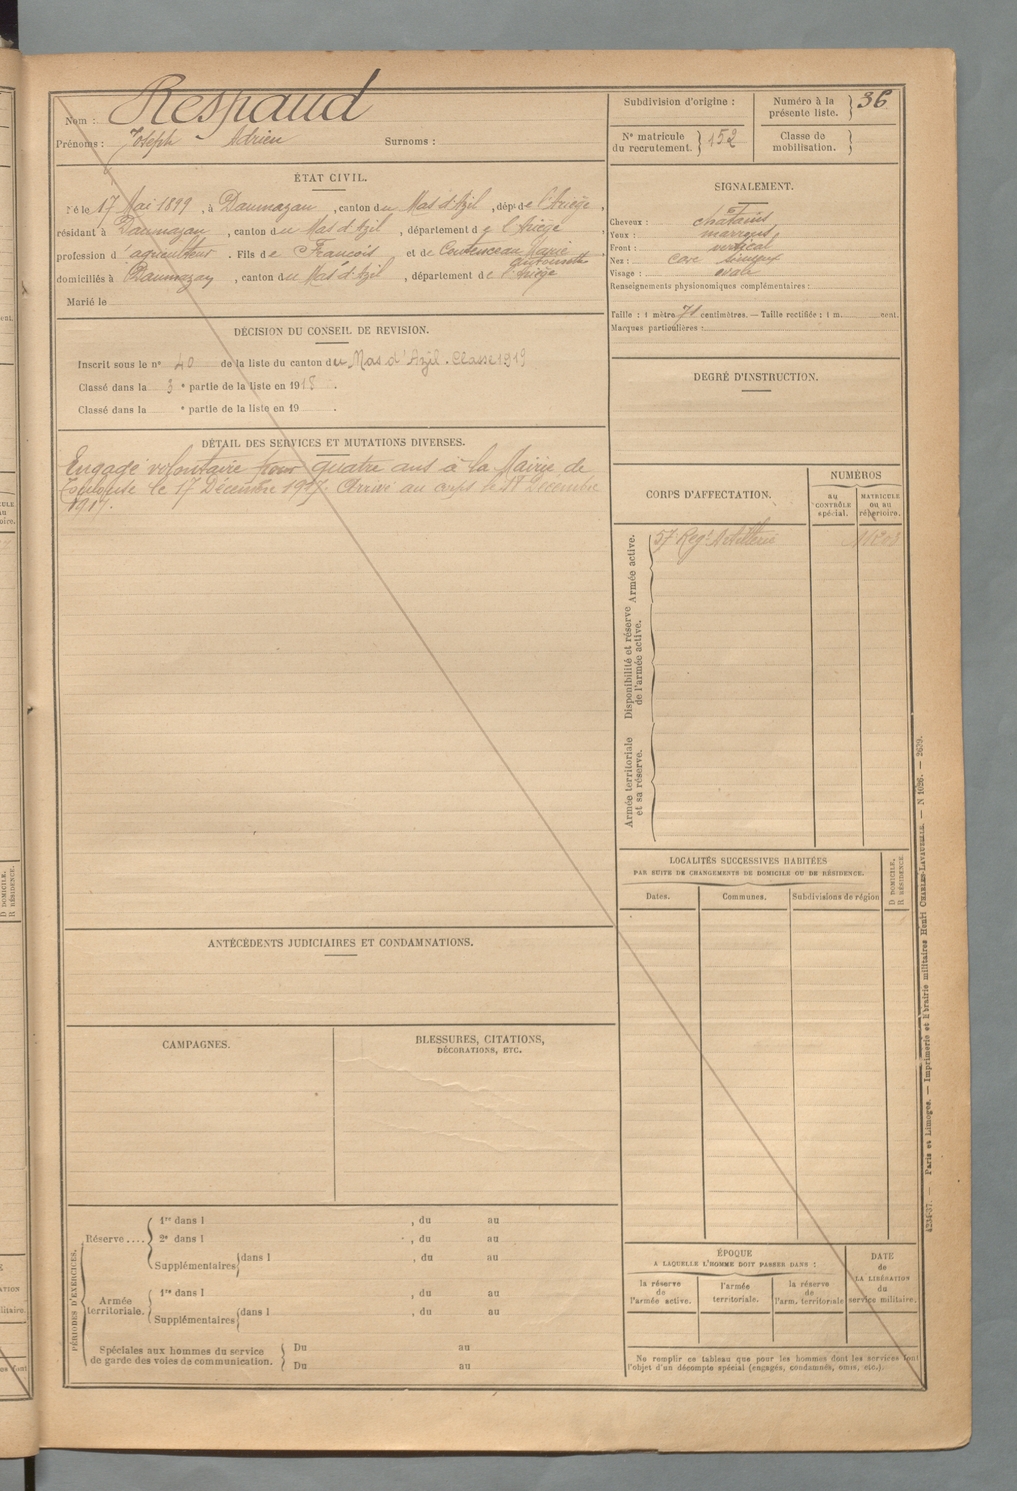 Nom : Respaud
Prénoms : Joseph - Adrien Surnoms :
Subdivision d'origine :
Numéro à la présente liste. 36
N° matricule du recrutement. 152
Classe de mobilisation.
ÉTAT CIVIL.
Né le 17 Mai 1899, à Daumazan, canton du Mas d'Azil, dépt de l'Ariège,
résidant à Daumazan, canton du Mas d'Azil, département de l'Ariège,
profession d'agriculteur. Fils de François et de Marie Antoinette
domiciliés à Daumazan, canton du Mas d'Azil, département de l'Ariège
Marié le
SIGNALEMENT.
Cheveux : chatains
Yeux : marrons
Front : vertical
Nez : cave sinueux
Visage : ovale
Renseignements physionomiques complémentaires :
Taille : 1 mètre 71 centimètres. — Taille rectifiée : 1 m. cent.
Marques particulières :
DÉCISION DU CONSEIL DE REVISION.
Inscrit sous le n° 40 de la liste du canton du Mas d'Azil. Classe 1919
Classé dans la 3e partie de la liste en 1918.
Classé dans la e partie de la liste en 19 .
DEGRÉ D'INSTRUCTION.
DÉTAIL DES SERVICES ET MUTATIONS DIVERSES.
Engagé volontaire pour quatre ans à la Mairie de
Toulouse le 17 Décembre 1917. Arrivé au corps le Décembre
1917.
CORPS D'AFFECTATION.
NUMÉROS
au CONTRÔLE spécial.
MATRICULE ou au répertoire.
Armée active.
57 Regt Artillerie
Disponibilité et réserve de l'armée active.
Armée territoriale et sa réserve.
LOCALITÉS SUCCESSIVES HABITÉES
PAR SUITE DE CHANGEMENTS DE DOMICILE OU DE RÉSIDENCE.
Dates. Communes. Subdivisions de région
D DOMICILE.
R RÉSIDENCE.
ANTÉCÉDENTS JUDICIAIRES ET CONDAMNATIONS.
CAMPAGNES.
BLESSURES, CITATIONS,
DÉCORATIONS, ETC.
PÉRIODES D'EXERCICES.
Réserve ....
1re dans l , du au
2e dans l , du au
Supplémentaires dans l , du au
Armée territoriale.
1re dans l , du au
Supplémentaires dans l , du au
Spéciales aux hommes du service
de garde des voies de communication.
Du au
Du au
ÉPOQUE
A LAQUELLE L'HOMME DOIT PASSER DANS :
la réserve de l'armée active.
l'armée territoriale.
la réserve de l'arm. territoriale
DATE de LA LIBÉRATION du service militaire.
Ne remplir ce tableau que pour les hommes dont les services font
l'objet d'un décompte spécial (engagés, condamnés, omis, etc.).
Paris et Limoges. — Imprimerie et librairie militaires Henri CHARLES-LAVAUZELLE. — N 1026. — 2679.